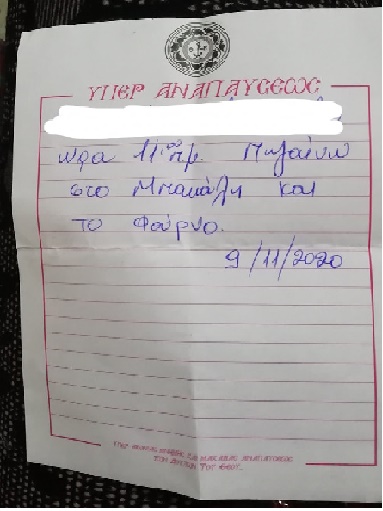 ΥΠΕΡ ΑΝΑΠΑΥΣΕΩΣ
ώρα 11:00 πμ Πηγαίνω
στο Μπακάλη και
το Φούρνο.
9/11/2020